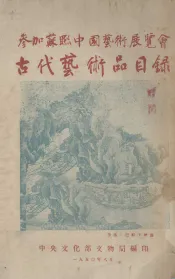 參加蘇聯中國藝術展覽會
古代藝術品目錄
中央文化部文物局編印
一九五〇年八月